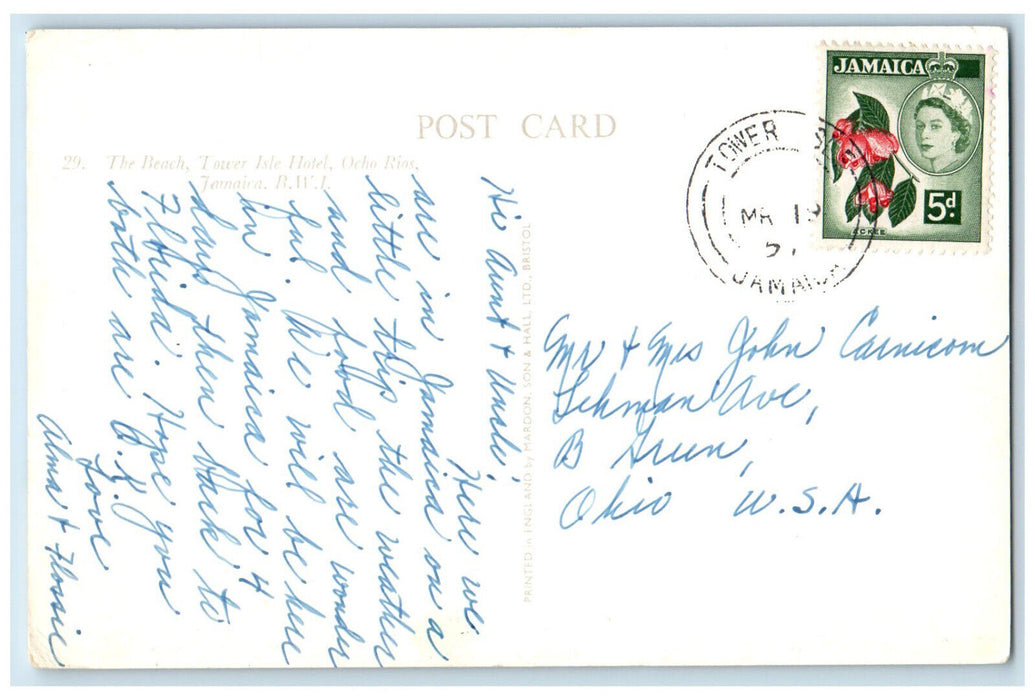 POST CARD
29. The Beach, Tower Isle Hotel, Ocho Rios,
Jamaica. B.W.I.
Hi Aunt + Uncle,
Here we
are in Jamaica on a
little trip the weather
and food are wonder
ful. We will be here
in Jamaica for 4
days then back to
Florida. Hope you
both are O.K.
Love
Alma + Flossie
PRINTED in ENGLAND by MARDON, SON & HALL, LTD., BRISTOL
TOWER
MR 19
57
JAMAICA
JAMAICA
5d.
ACKEE
Mr + Mrs John Carnicom
Lehman Ave,
B Green,
Ohio U.S.A.